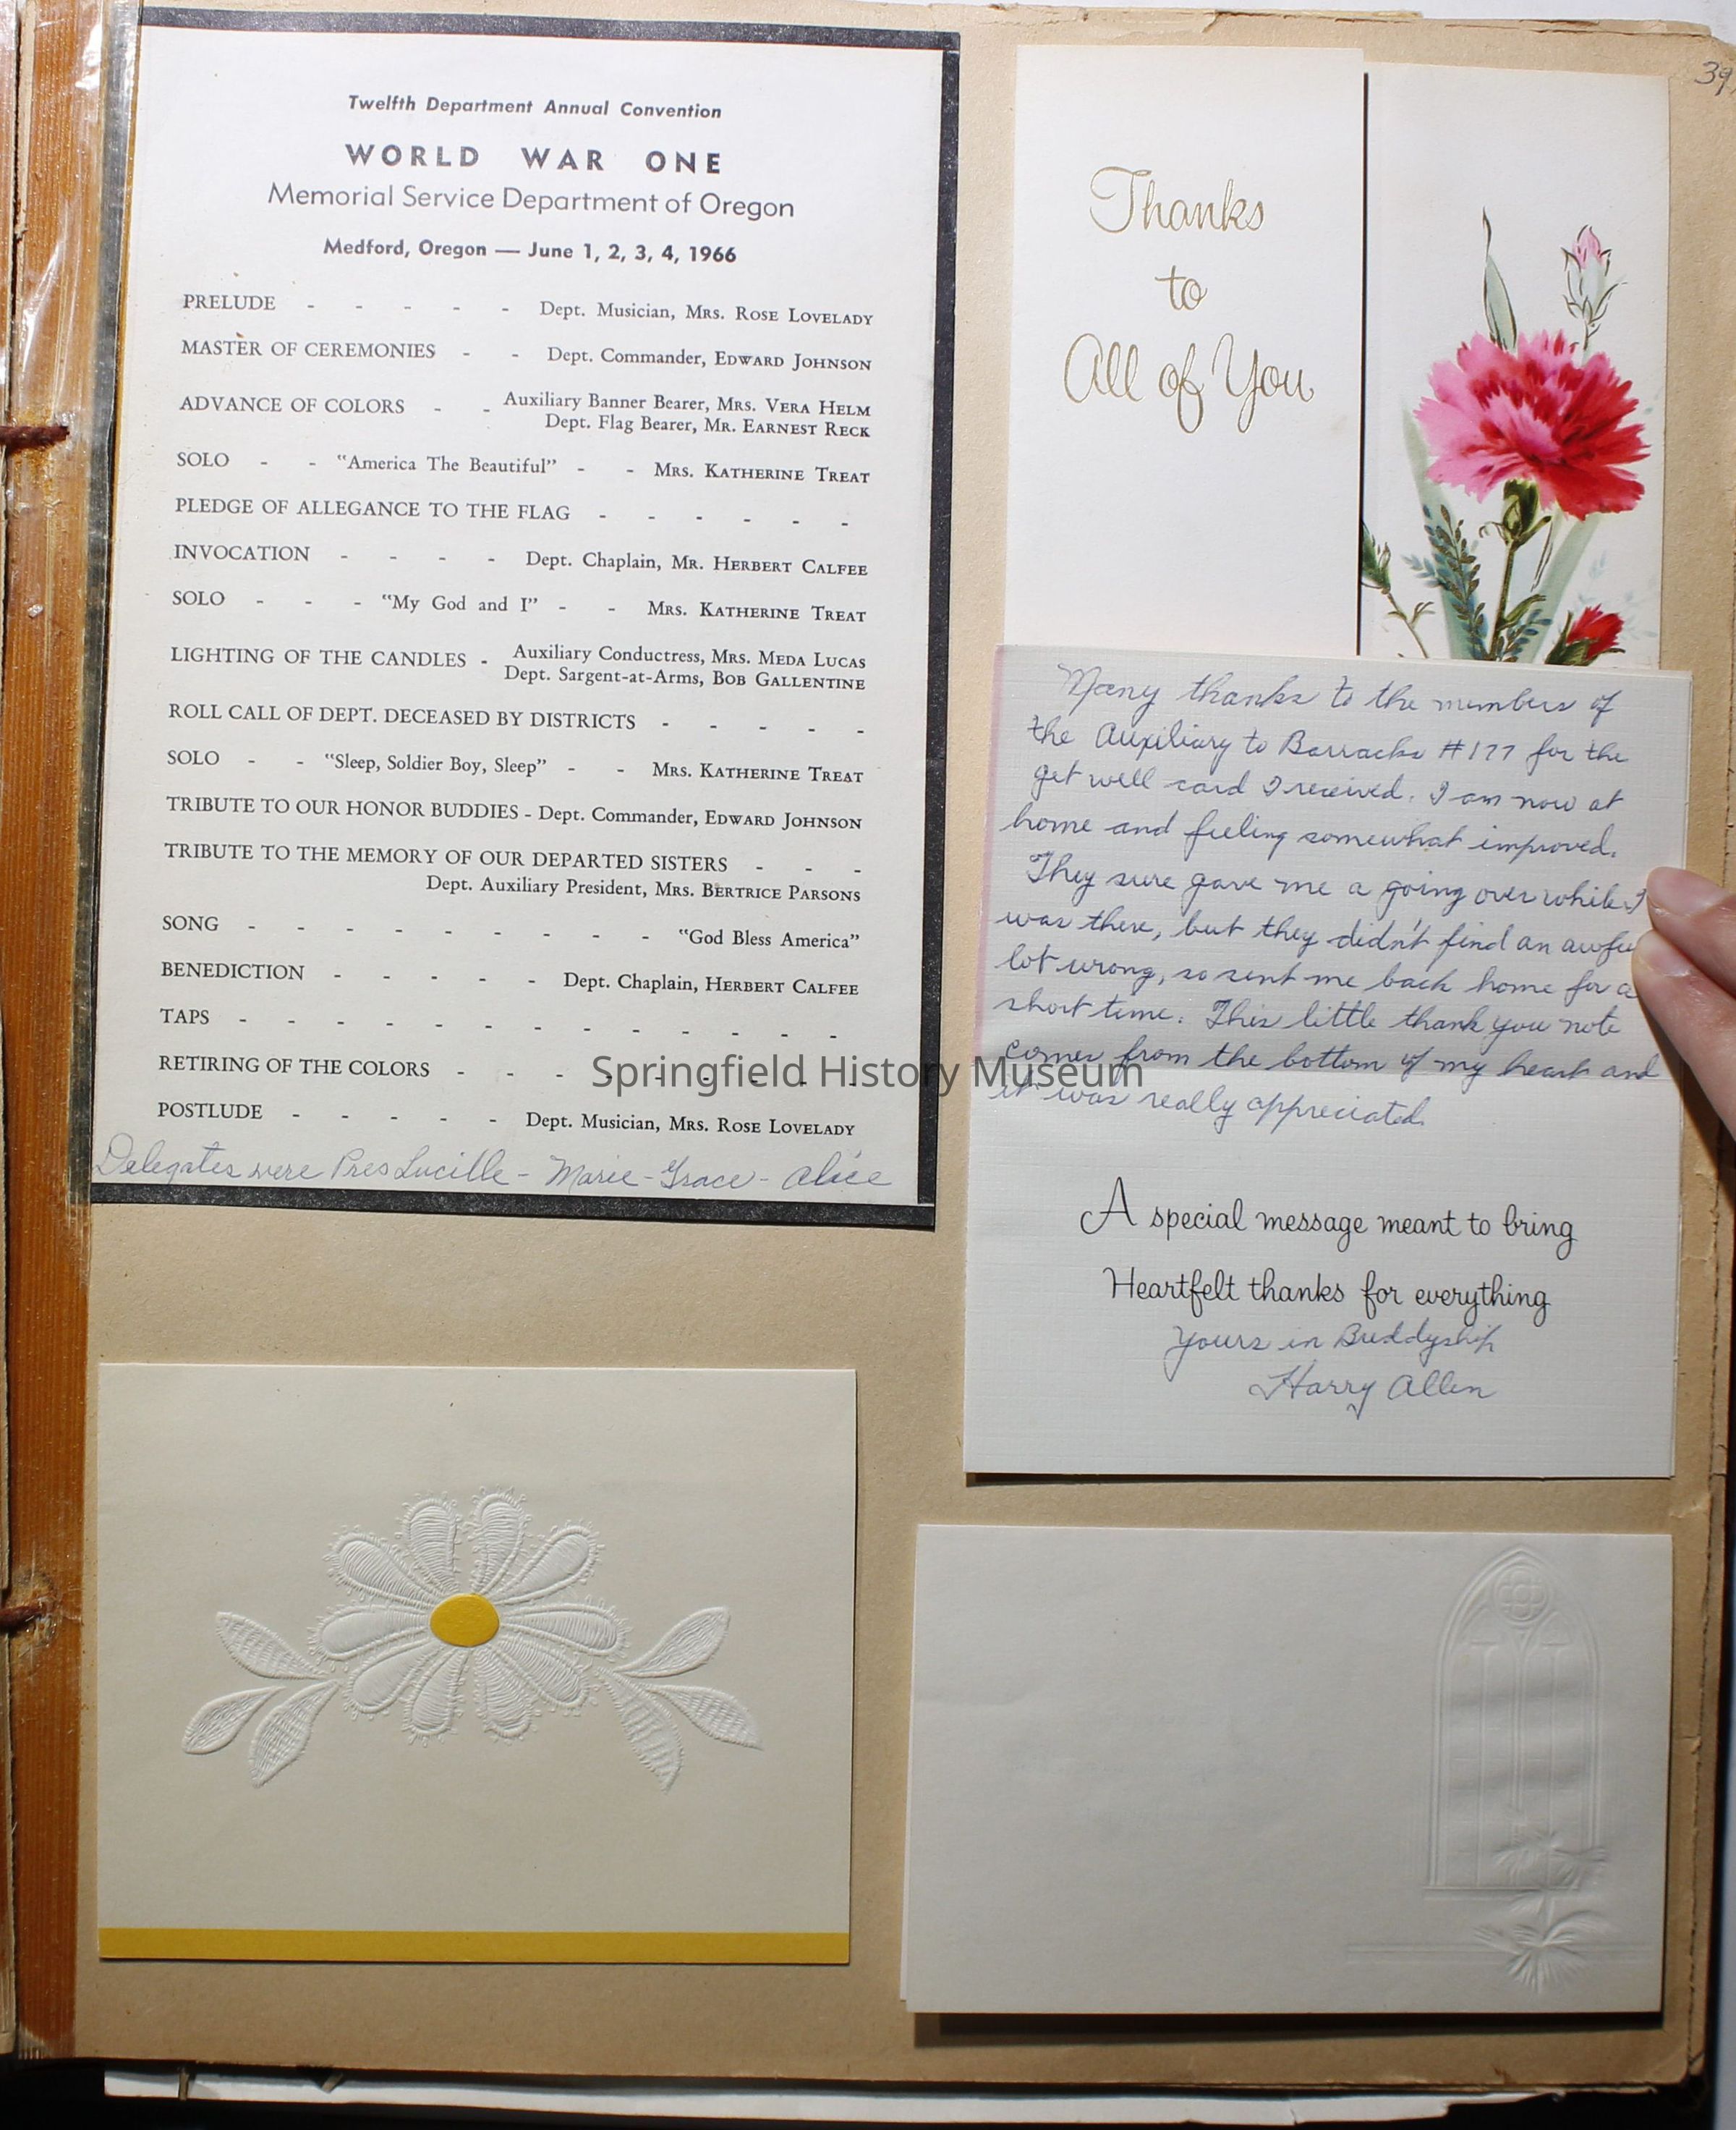 39
Twelfth Department Annual Convention
WORLD WAR ONE
Memorial Service Department of Oregon
Medford, Oregon — June 1, 2, 3, 4, 1966
PRELUDE - - - - - Dept. Musician, MRS. ROSE LOVELADY
MASTER OF CEREMONIES - - Dept. Commander, EDWARD JOHNSON
ADVANCE OF COLORS - - Auxiliary Banner Bearer, MRS. VERA HELM
Dept. Flag Bearer, MR. EARNEST RECK
SOLO - - "America The Beautiful" - - MRS. KATHERINE TREAT
PLEDGE OF ALLEGANCE TO THE FLAG - - - - - -
INVOCATION - - - - Dept. Chaplain, MR. HERBERT CALFEE
SOLO - - - "My God and I" - - MRS. KATHERINE TREAT
LIGHTING OF THE CANDLES - Auxiliary Conductress, MRS. MEDA LUCAS
Dept. Sargent-at-Arms, BOB GALLENTINE
ROLL CALL OF DEPT. DECEASED BY DISTRICTS - - - - -
SOLO - - "Sleep, Soldier Boy, Sleep" - - MRS. KATHERINE TREAT
TRIBUTE TO OUR HONOR BUDDIES - Dept. Commander, EDWARD JOHNSON
TRIBUTE TO THE MEMORY OF OUR DEPARTED SISTERS - - -
Dept. Auxiliary President, MRS. BERTRICE PARSONS
SONG - - - - - - - - - "God Bless America"
BENEDICTION - - - - - Dept. Chaplain, HERBERT CALFEE
TAPS - - - - - - - - - - - - -
RETIRING OF THE COLORS - - - - - - - - -
POSTLUDE - - - - - Dept. Musician, MRS. ROSE LOVELADY
Delegates were Pres Lucille - Marie - Grace - Alice
Thanks
to
All of You
Many thanks to the members of
the Auxiliary to Barracks #177 for the
get well card I received. I am now at
home and feeling somewhat improved.
They sure gave me a going over while I
was there, but they didn't find an awful
lot wrong, so sent me back home for a
short time. This little thank you note
comes from the bottom of my heart and
it was really appreciated.
A special message meant to bring
Heartfelt thanks for everything
Yours in Buddyship
Harry Allen
Springfield History Museum